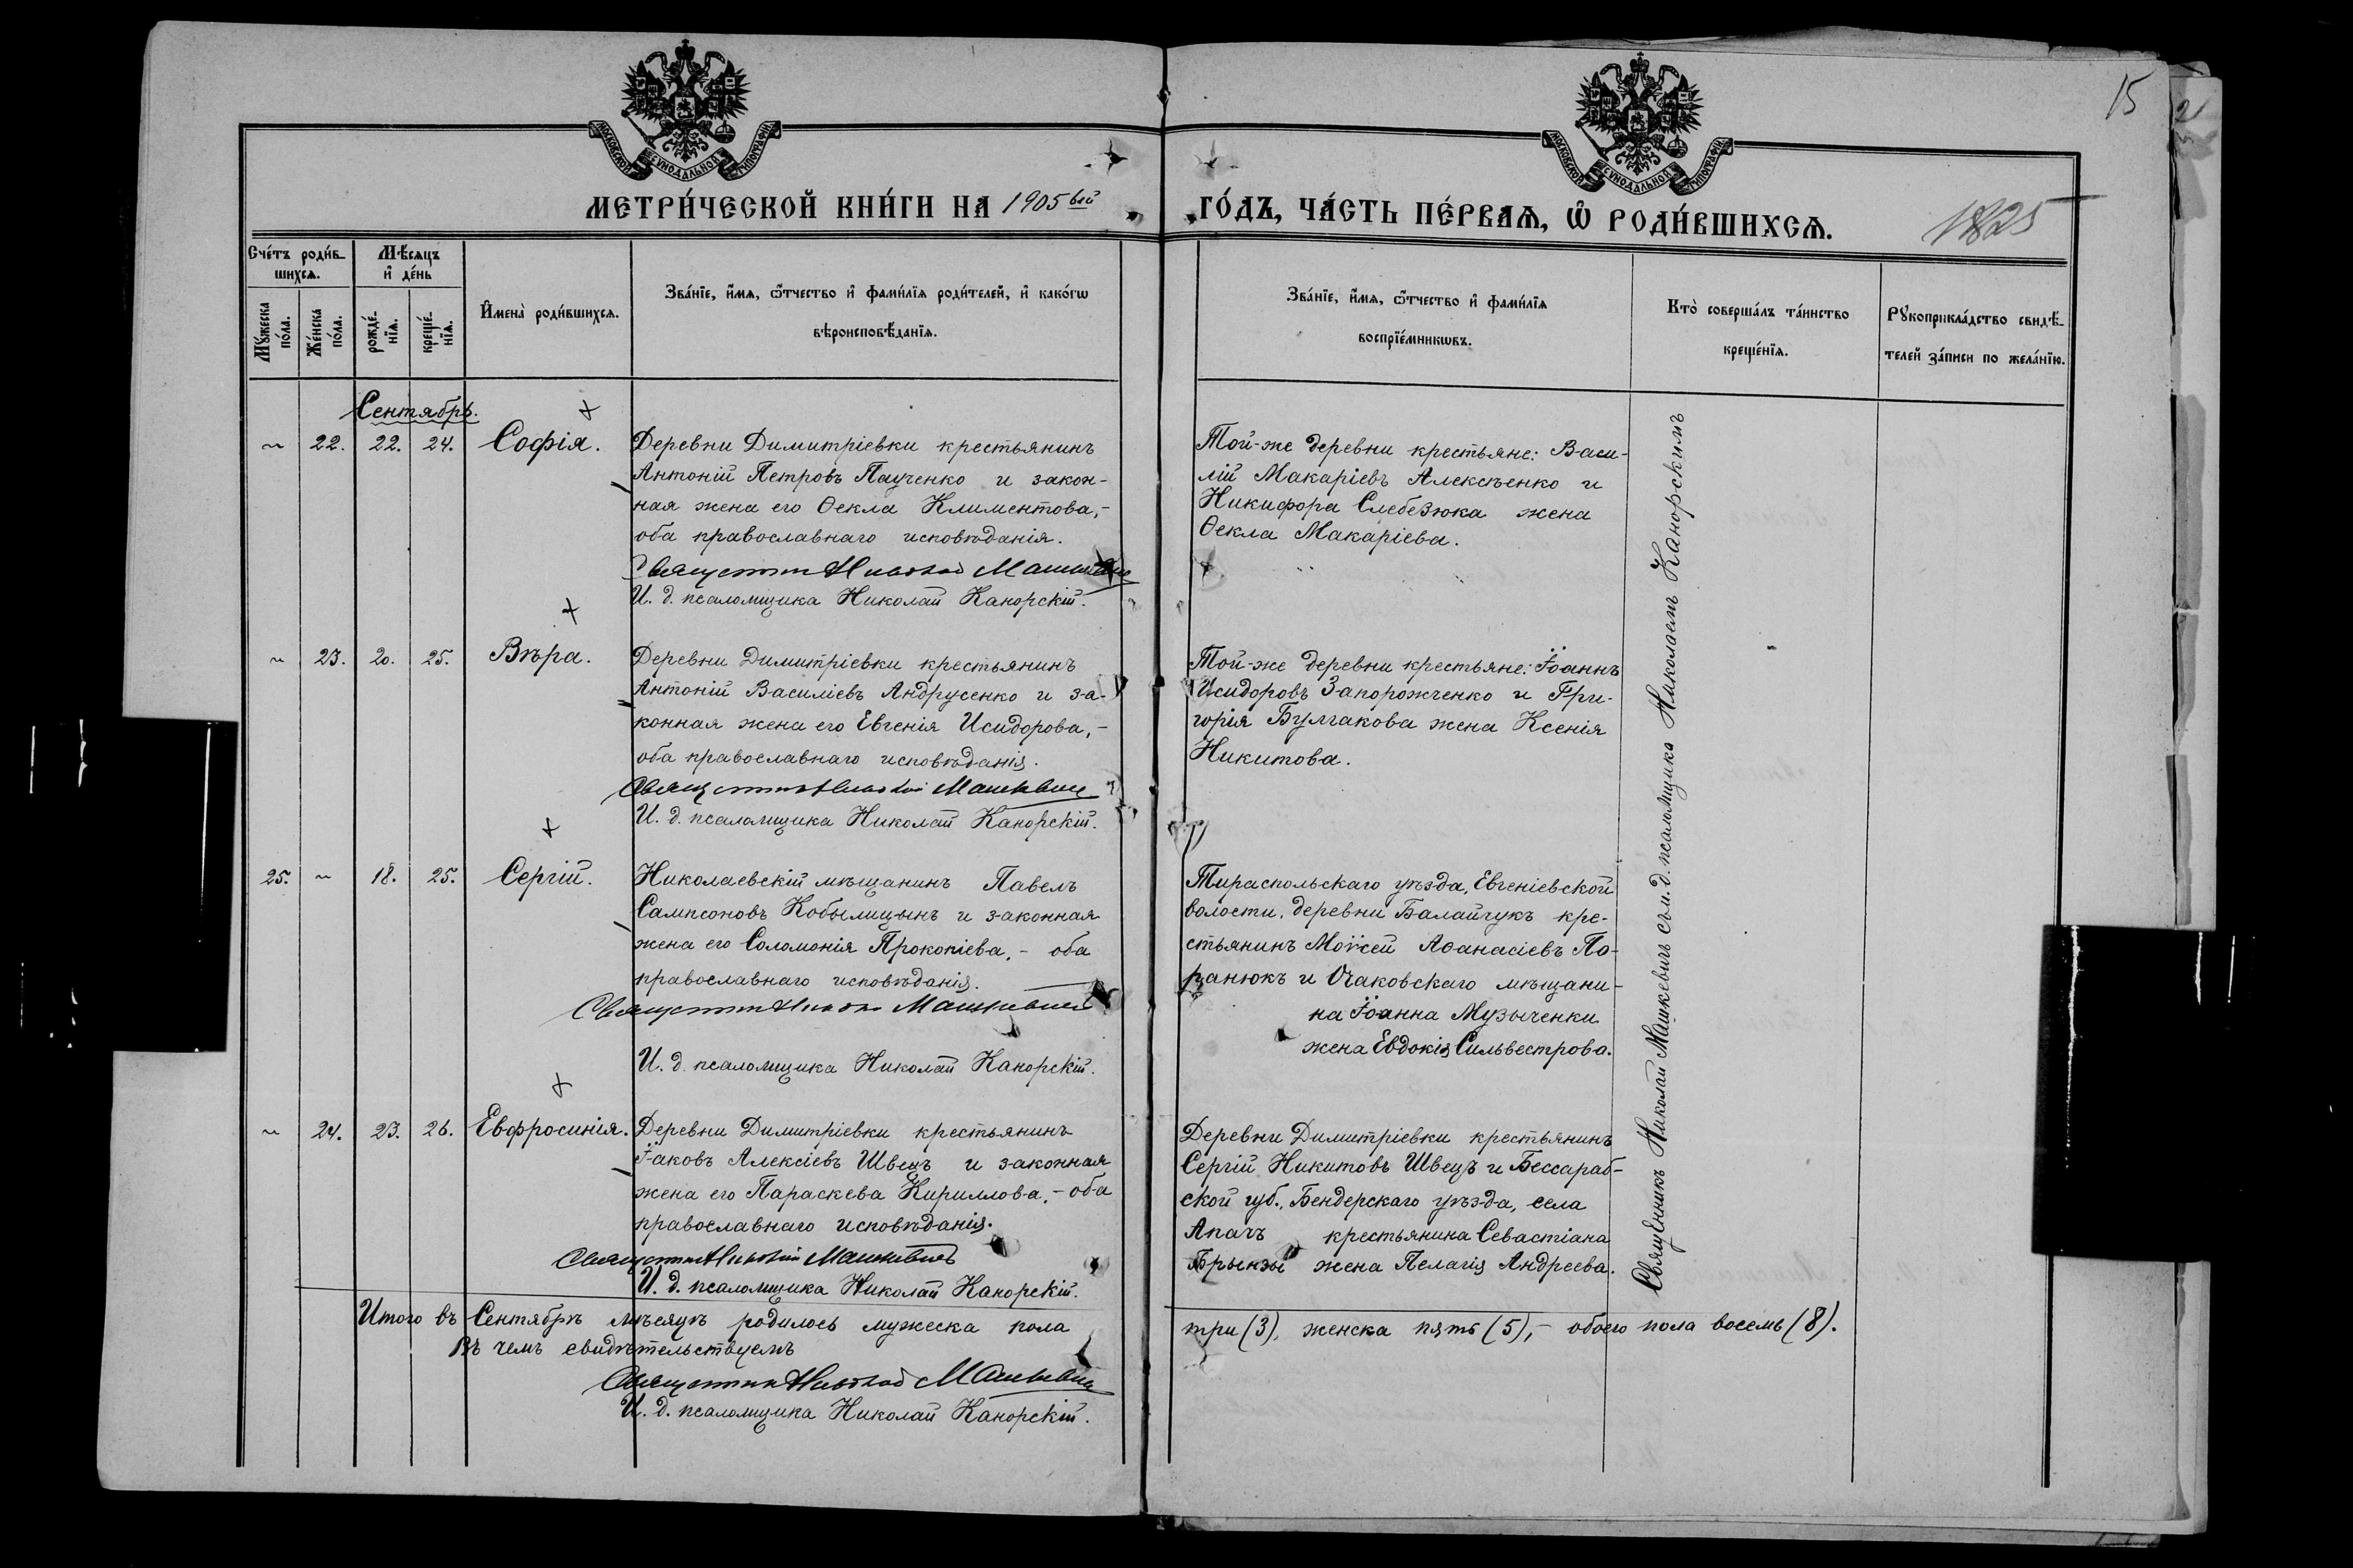 15
МОСКОВСКОЙ СѴНОДАЛЬНОЙ ТИПОГРАФІИ
МОСКОВСКОЙ СѴНОДАЛЬНОЙ ТИПОГРАФІИ
МЕТРИ́ЧЕСКОЙ КНИ́ГИ НА 1905ый
ГО́ДЪ, ЧА́СТЬ ПЕ́РВАѦ, Ѡ РОДИ́ВШИХСѦ.
1825
Сче́тъ роди́вшихсѧ.
Мѣ́сѧцъ и де́нь
Мꙋ́жеска по́ла.
Же́нска по́ла.
рожде́нїѧ.
креще́нїѧ.
И҆мена̀ роди́вшихсѧ.
Зва́нїе, и҆́мѧ, ѻ҆́тчество и҆ фами́лїѧ роди́телей, и҆ како́гѡ
вѣроисповѣ́данїѧ.
Зва́нїе, и҆́мѧ, ѻ҆́тчество и҆ фами́лїѧ
воспрїе́мникѡвъ.
Кто̀ соверша́лъ та́инство
креще́нїѧ.
Рꙋкоприкла́дство свидѣ́-
телей за́писи по жела́нїю.
Сентябрь.
~ 22. 22. 24. Софія.
Деревни Димитріевки крестьянинъ
Антоній Петровъ Пащенко и закон-
ная жена его Ѳекла Климентова,-
оба православнаго исповѣданія.
Священникъ Николай Машкевичъ
И. д. псаломщика Николай Канорскій.
Той-же деревни крестьяне: Васи-
лій Макаріевъ Алексѣенко и
Никифора Слебезюка жена
Ѳекла Макаріева.
~ 23. 20. 25. Вѣра.
Деревни Димитріевки крестьянинъ
Антоній Василіевъ Андрусенко и за-
конная жена его Евгенія Исидорова,-
оба православнаго исповѣданія.
Священникъ Николай Машкевичъ
И. д. псаломщика Николай Канорскій.
Той-же деревни крестьяне: Іоаннъ
Исидоровъ Запорожченко и Гри-
горія Булгакова жена Ксенія
Никитова.
25. ~ 18. 25. Сергій.
Николаевскій мѣщанинъ Павелъ
Сампсоновъ Кобылицынъ и законная
жена его Соломонія Прокопіева,- оба
православнаго исповѣданія.
Священникъ Николай Машкевичъ
И. д. псаломщика Николай Канорскій.
Тираспольскаго уѣзда, Евгеніевской
волости, деревни Балайчукъ кре-
стьянинъ Моѵсей Аѳанасіевъ По-
ранюкъ и Очаковскаго мѣщани-
на Іоанна Музыченки
жена Евдокія Сильвестрова.
~ 24. 23. 26. Евфросинія.
Деревни Димитріевки крестьянинъ
Іаковъ Алексіевъ Швецъ и законная
жена его Параскева Кириллова,- оба
православнаго исповѣданія.
Священникъ Николай Машкевичъ
И. д. псаломщика Николай Канорскій.
Деревни Димитріевки крестьянинъ
Сергій Никитовъ Швецъ и Бессараб-
ской губ., Бендерскаго уѣзда, села
Апачъ крестьянина Севастіана
Брынзы жена Пелагія Андреева.
Священникъ Николай Машкевичъ съ и. д. псаломщика Николаемъ Канорскимъ
Итого въ Сентябрѣ мѣсяцѣ родилось мужеска пола три (3), женска пять (5),- обоего пола восемь (8).
Въ чемъ свидѣтельствуемъ
Священникъ Николай Машкевичъ
И. д. псаломщика Николай Канорскій.